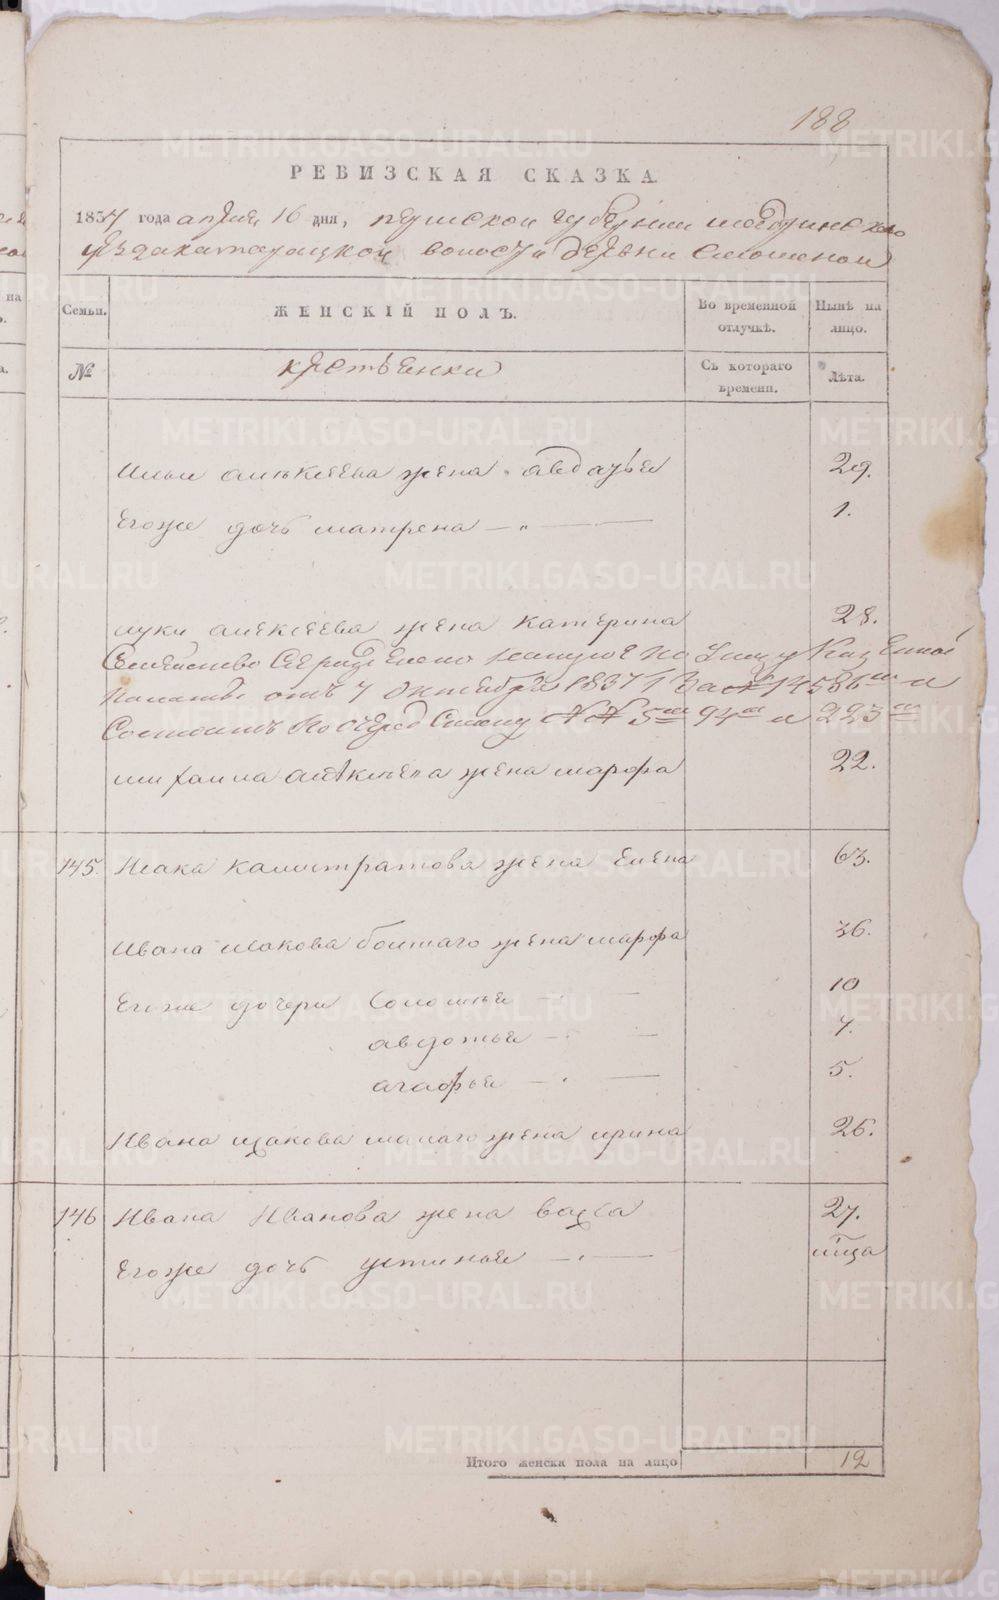 188
РЕВИЗСКАЯ СКАЗКА
1834 года апреля 16 дня, пермской губернии шадринскаго
уезда катарацкой волости деревни
Семьи.
ЖЕНСКІЙ ПОЛЪ.
Во временной отлучкѣ.
Нынѣ на лицо.
№
крестьянки
Съ котораго времени.
Лѣта.
Ильи алексеева жена авдотья 29.
Егоже дочь матрена 1.
луки алексеева жена катерина 28.
Семейство Казенной
Палаты отъ 7 Октября 1837 г. за № 14586 и
Состоитъ №№ 5 94 и 223
михаила алексеева жена марфа 22.
145. Исака калистратова жена Елена 63.
Ивана исакова болшаго жена марфа 36.
Егоже дочери Соломея 10
авдотья 7.
агафья 5.
Ивана исакова малаго жена ирина 26.
146 Ивана Иванова жена васса 27.
Егоже дочь устинья
Итого женска пола на лицо 12
METRIKI.GASO-URAL.RU